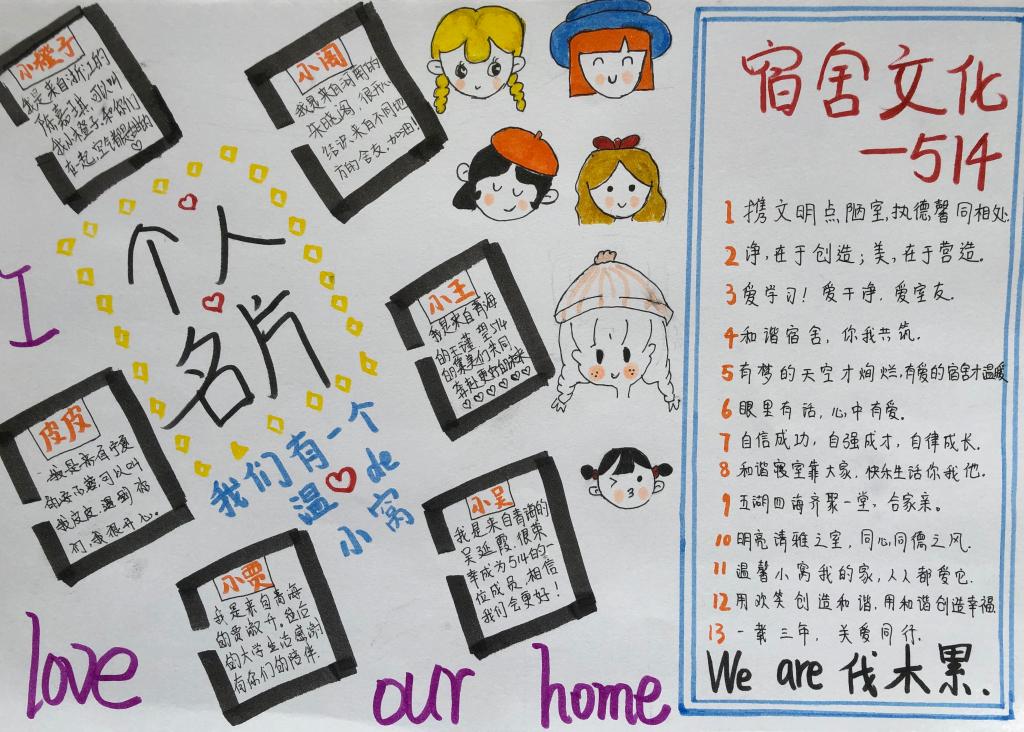 小橙子
我是来自浙江的
陈嘉琪.可以叫
我小橙子.和你们
在一起,空气都是甜甜的
小闫
我是来自河南的
闫晓闫.很开心
结识来自不同地
方的舍友.加油!
个人
名片
小王
我是来自青海
的王谨.望514
的集美们共同
奔赴更好的未来
皮皮
我是来自宁夏
可以叫
我皮皮.遇到你
们,我很开心.
我们有一个
温 de
小窝
小贾
我是来自青海
的贾淑卉.这位
的大学生活感谢
有你们的陪伴.
小吴
我是来自青海的
吴延霞.很荣
幸成为514的一
位成员.相信
我们会更好!
I
love our home
宿舍文化
—514
1 携文明点陋室,执德馨同相处
2 净,在于创造;美,在于营造。
3 爱学习!爱干净.爱室友.
4 和谐宿舍,你我共筑.
5 有梦的天空才绚烂,有爱的宿舍才温暖
6 眼里有话,心中有爱。
7 自信成功,自强成才,自律成长.
8 和谐寝室靠大家,快乐生活你我他.
9 五湖四海齐聚一堂,合家亲。
10 明亮清雅之室,同心同德之风.
11 温馨小窝我的家,人人都爱它.
12 用欢笑创造和谐,用和谐创造幸福
13 一载三年,关爱同行.
We are 伐木累.